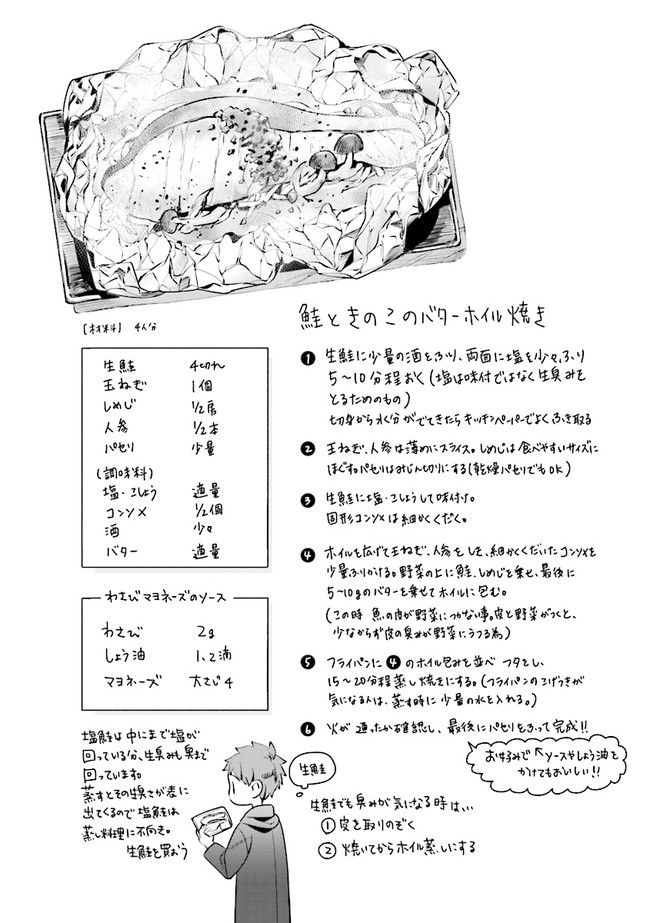 鮭ときのこのバターホイル焼き
[材料] 4人分
生鮭 4切れ
玉ねぎ 1個
しめじ 1/2房
人参 1/2本
パセリ 少量
(調味料)
塩・こしょう 適量
コンソメ 1/2個
酒 少々
バター 適量
わさびマヨネーズのソース
わさび 2g
しょう油 1、2滴
マヨネーズ 大さじ4
❶ 生鮭に少量の酒をふり、両面に塩を少々ふり
5〜10分程おく(塩は味付ではなく生臭みを
とるためのもの)
切身から水分がでてきたらキッチンペーパーでよくふき取る
❷ 玉ねぎ、人参は薄めにスライス。しめじは食べやすいサイズに
ほぐす。パセリはみじん切りにする(乾燥パセリでもOK)
❸ 生鮭に塩・こしょうして味付け。
固形コンソメは細かくくだく。
❹ ホイルを広げて玉ねぎ、人参をしき、細かくくだいたコンソメを
少量ふりかける。野菜の上に鮭、しめじを乗せ、最後に
5〜10gのバターを乗せてホイルに包む。
(この時 魚の皮が野菜につかない事。皮と野菜がつくと、
少なからず皮の臭みが野菜にうつる為)
❺ フライパンに❹のホイル包みを並べ フタをし、
15〜20分程蒸し焼きにする。(フライパンのこげつきが
気になる人は、蒸す時に少量の水を入れる。)
❻ 火が通ったか確認し、最後にパセリをふって完成!!
お好みで←ソースやしょう油を
かけてもおいしい!!
塩鮭は中にまで塩が
回っている分、生臭みも奥まで
回っています。
蒸すとその臭さが表に
出てくるので塩鮭は
蒸し料理に不向き。
生鮭を買おう
生鮭
生鮭でも臭みが気になる時は、、、
① 皮を取りのぞく
② 焼いてからホイル蒸しにする